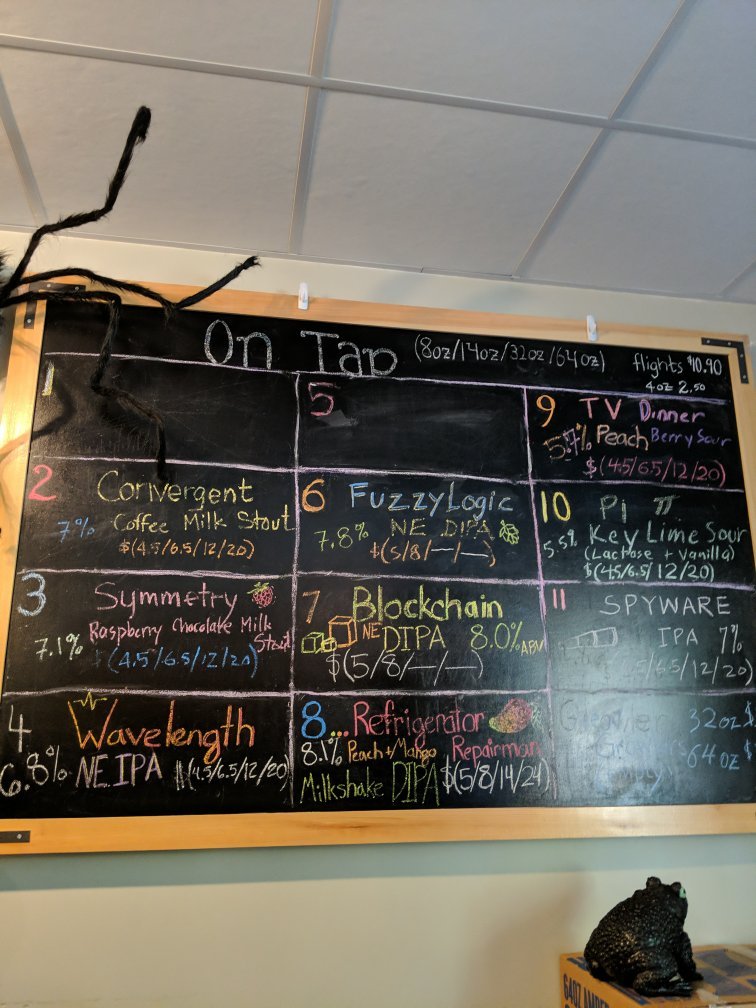 On Tap (8oz/14oz/32oz/64oz) flights $10.90
4oz 2.50
1
2 Convergent
7% Coffee Milk Stout
$(4.5/6.5/12/20)
3 Symmetry
7.1% Raspberry Chocolate Milk
Stout
$(4.5/6.5/12/20)
4 Wavelength
6.8% NE IPA $(4.5/6.5/12/20)
5
6 FuzzyLogic
7.8% NE DIPA
$(5/8/—/—)
7 Blockchain
NE DIPA 8.0% ABV
$(5/8/—/—)
8... Refrigerator
8.1% Peach + Mango Repairman
Milkshake DIPA $(5/8/14/24)
9 TV Dinner
Peach Berry Sour
$(4.5/6.5/12/20)
10 Pi π
5.5% Key Lime Sour
(Lactose + Vanilla)
$(4.5/6.5/12/20)
11 SPYWARE
IPA 7%
/6.5/12/20)
32oz $
64oz $